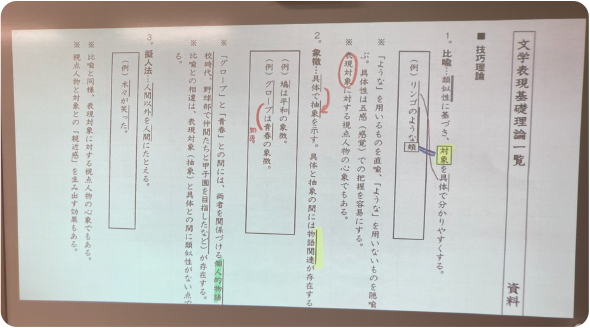 文学表現基礎理論一覧
資料
■ 技巧理論
1. 比喩…類似性に基づき、対象を具体で分かりやすくする。
(例) リンゴのような頬
※ 「ような」を用いるものを直喩、「ような」を用いないものを隠喩
ぶ。具体性は五感(感覚)での把握を容易にする。
※ 表現対象に対する視点人物の心象でもある。
2. 象徴…具体で抽象を示す。具体と抽象の間には物語関連が存在する
(例) 鳩は平和の象徴。
(例) グローブは青春の象徴。
※ 「グローブ」と「青春」との間には、両者を関係づける個人的物語
校時代、野球部で仲間たちと甲子園を目指したなど)が存在する。
※ 比喩との相違は、表現対象(抽象)と具体との間に類似性がない点で
る。
3. 擬人法…人間以外を人間にたとえる。
(例) 木々が笑った。
※ 比喩と同様、表現対象に対する視点人物の心象でもある。
※ 視点人物と対象との「親近感」を生み出す効果もある。